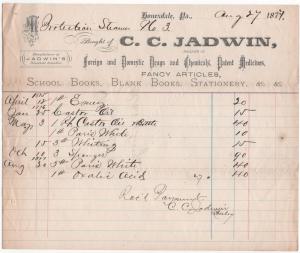 Honesdale, Pa., Aug 27 1877.
Protection Steamer No 3
Bought of C. C. JADWIN,
Manufacturer of
JADWIN'S
DEALER IN
Foreign and Domestic Drugs and Chemicals, Patent Medicines,
FANCY ARTICLES,
SCHOOL BOOKS, BLANK BOOKS, STATIONERY, &c. &c.
April 12 1# Emery 20
1876
Jan 25 Castor Oil 15
May 3 1 pt Castor Oil Bottle 40
1# Paris White 10
15 3# Whiting 15
Oct 10 3 Sponges 90
Aug 20 3# Paris White 40
1# Oxalic Acid 40
Rec'd Payment
C. C. Jadwin